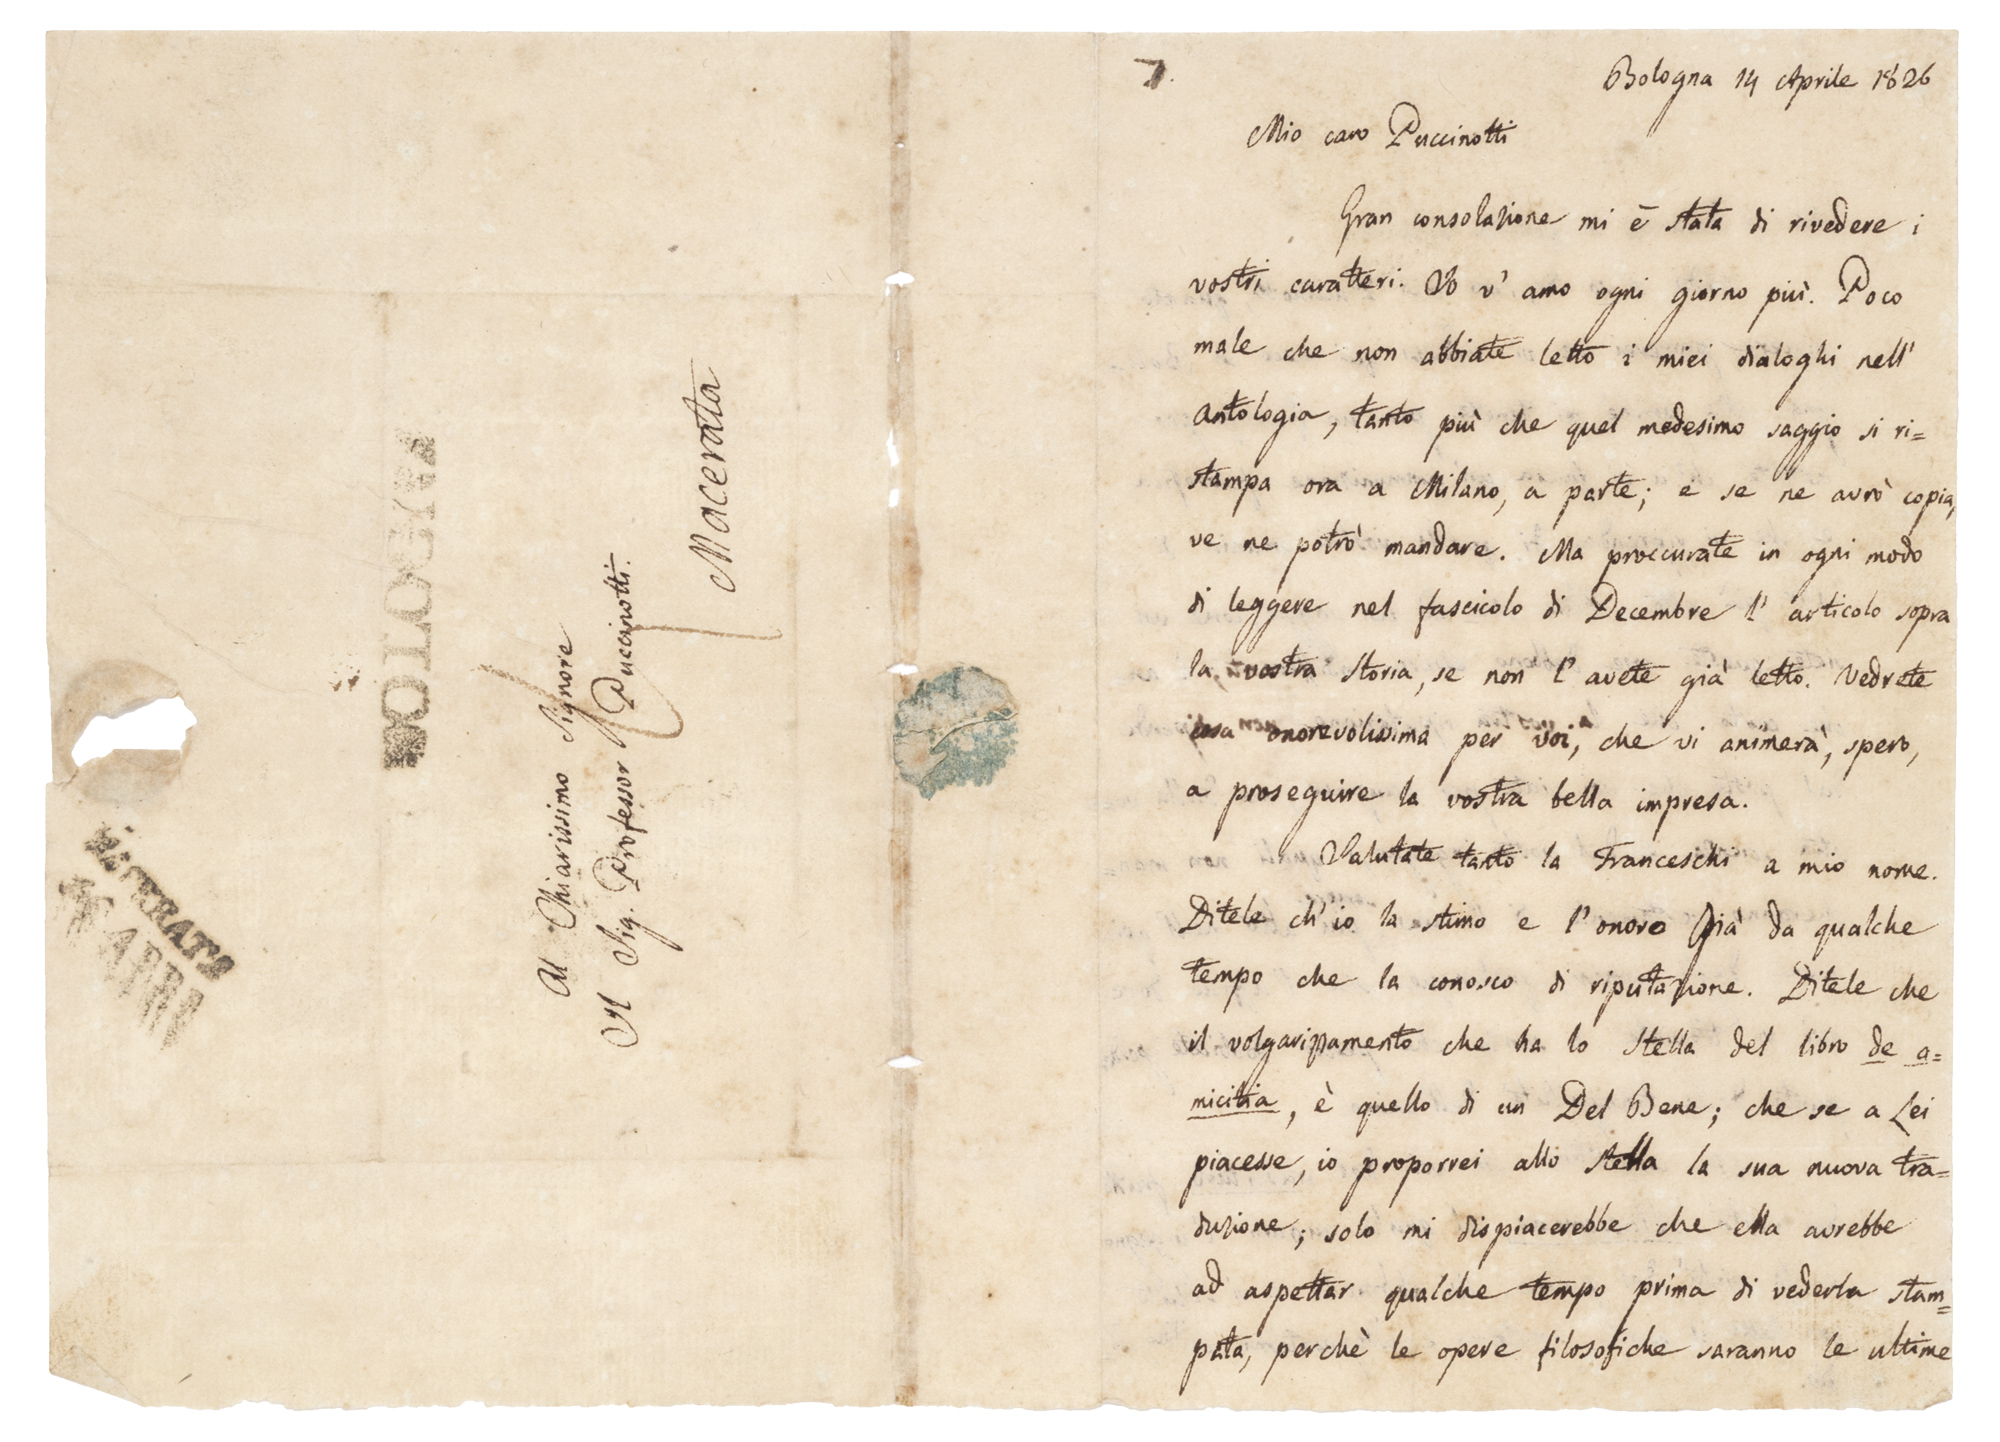 Al Chiarissimo Signore
Il Sig. Professor Puccinotti.
Macerata
MACERATA
7.
Bologna 14 Aprile 1826
Mio caro Puccinotti
Gran consolazione mi è stata di rivedere i
vostri caratteri. Io v' amo ogni giorno più. Poco
male che non abbiate letto i miei dialoghi nell'
Antologia, tanto più che quel medesimo saggio si ri=
stampa ora a Milano, a parte; e se ne avrò copia,
ve ne potrò mandare. Ma proccurate in ogni modo
di leggere nel fascicolo di Decembre l' articolo sopra
la vostra Storia, se non l' avete già letto. Vedrete
cosa onorevolissima per voi, che vi animerà, spero,
a proseguire la vostra bella impresa.
Salutate tanto la Franceschi a mio nome.
Ditele ch' io la stimo e l' onoro già da qualche
tempo che la conosco di riputazione. Ditele che
il volgarizzamento che ha lo Stella del libro de a=
micitia, è quello di un Del Bene; che se a Lei
piacesse, io proporrei allo Stella la sua nuova tra=
duzione; solo mi dispiacerebbe che ella avrebbe
ad aspettar qualche tempo prima di vederla stam=
pata, perchè le opere filosofiche saranno le ultime